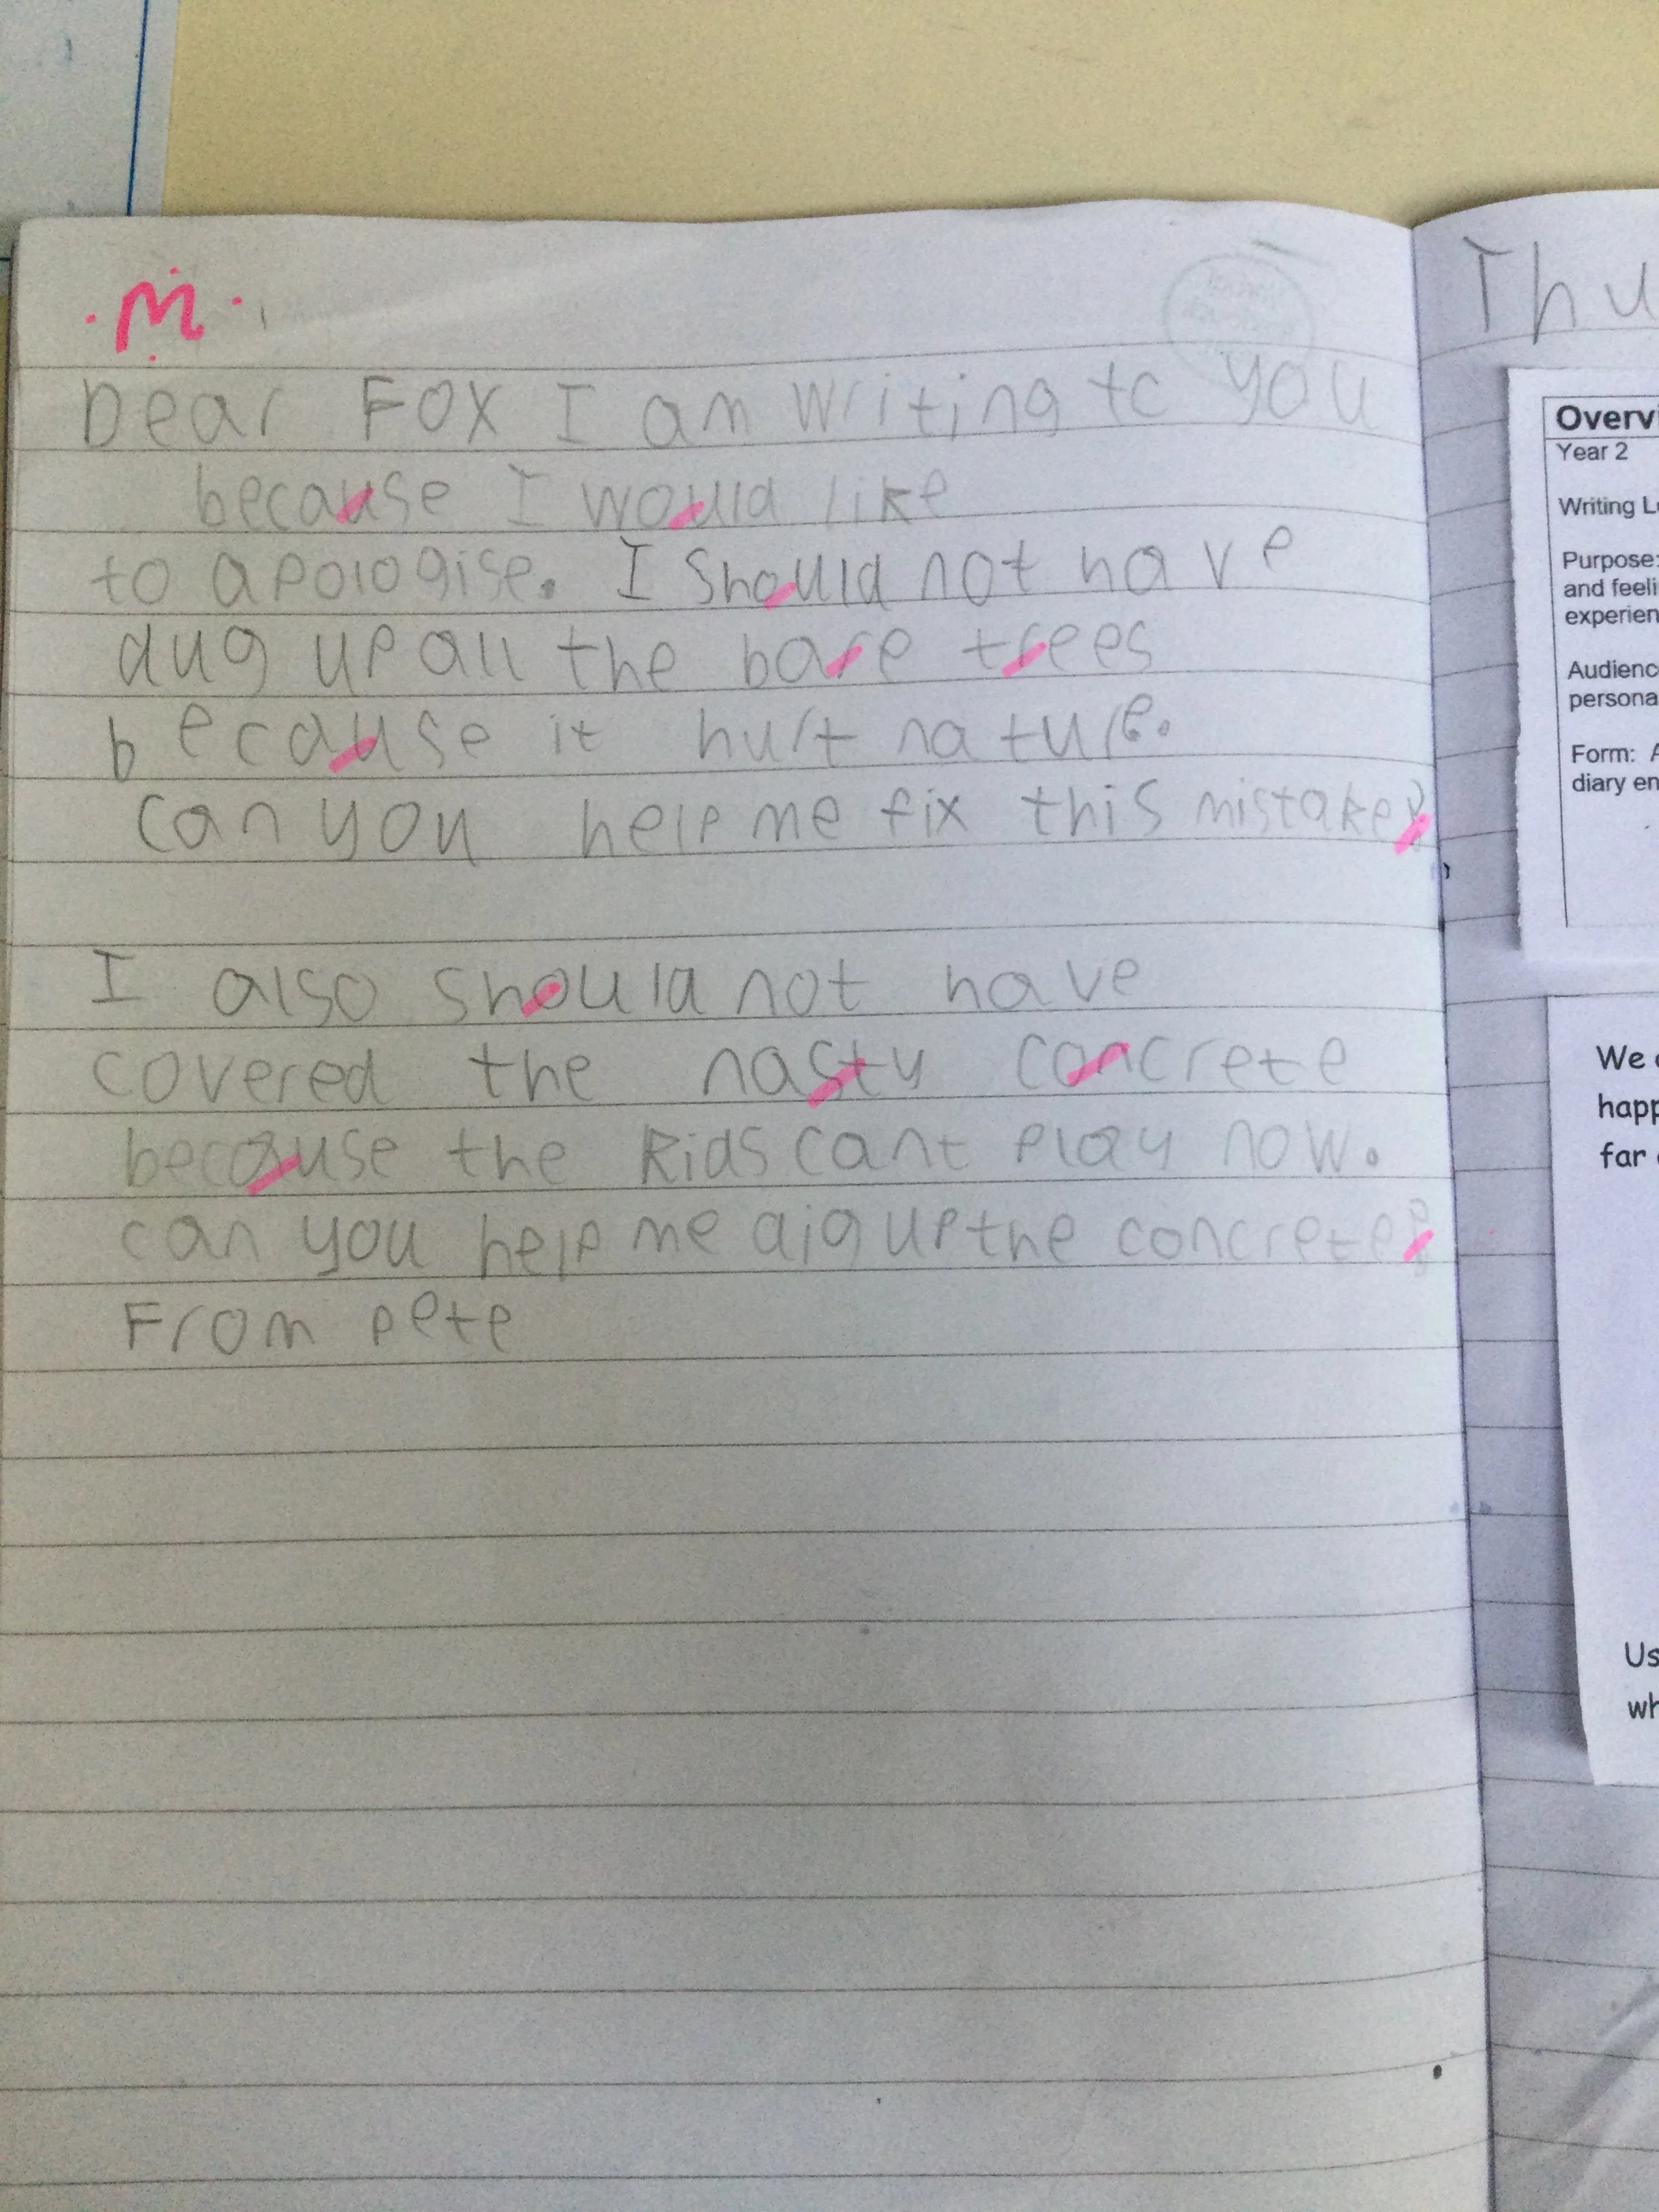 .M.
Dear Fox I am writing to you
because I would like
to apologise. I should not have
dug up all the bare trees
because it hurt nature.
can you help me fix this mistake?
I also should not have
covered the nasty concrete
because the kids cant play now.
can you help me dig up the concrete?
From pete
Thu
Overvi
Year 2
Writing Le
Purpose:
and feeli
experien
Audienc
persona
Form: A
diary en
We
happ
far
Us
wh